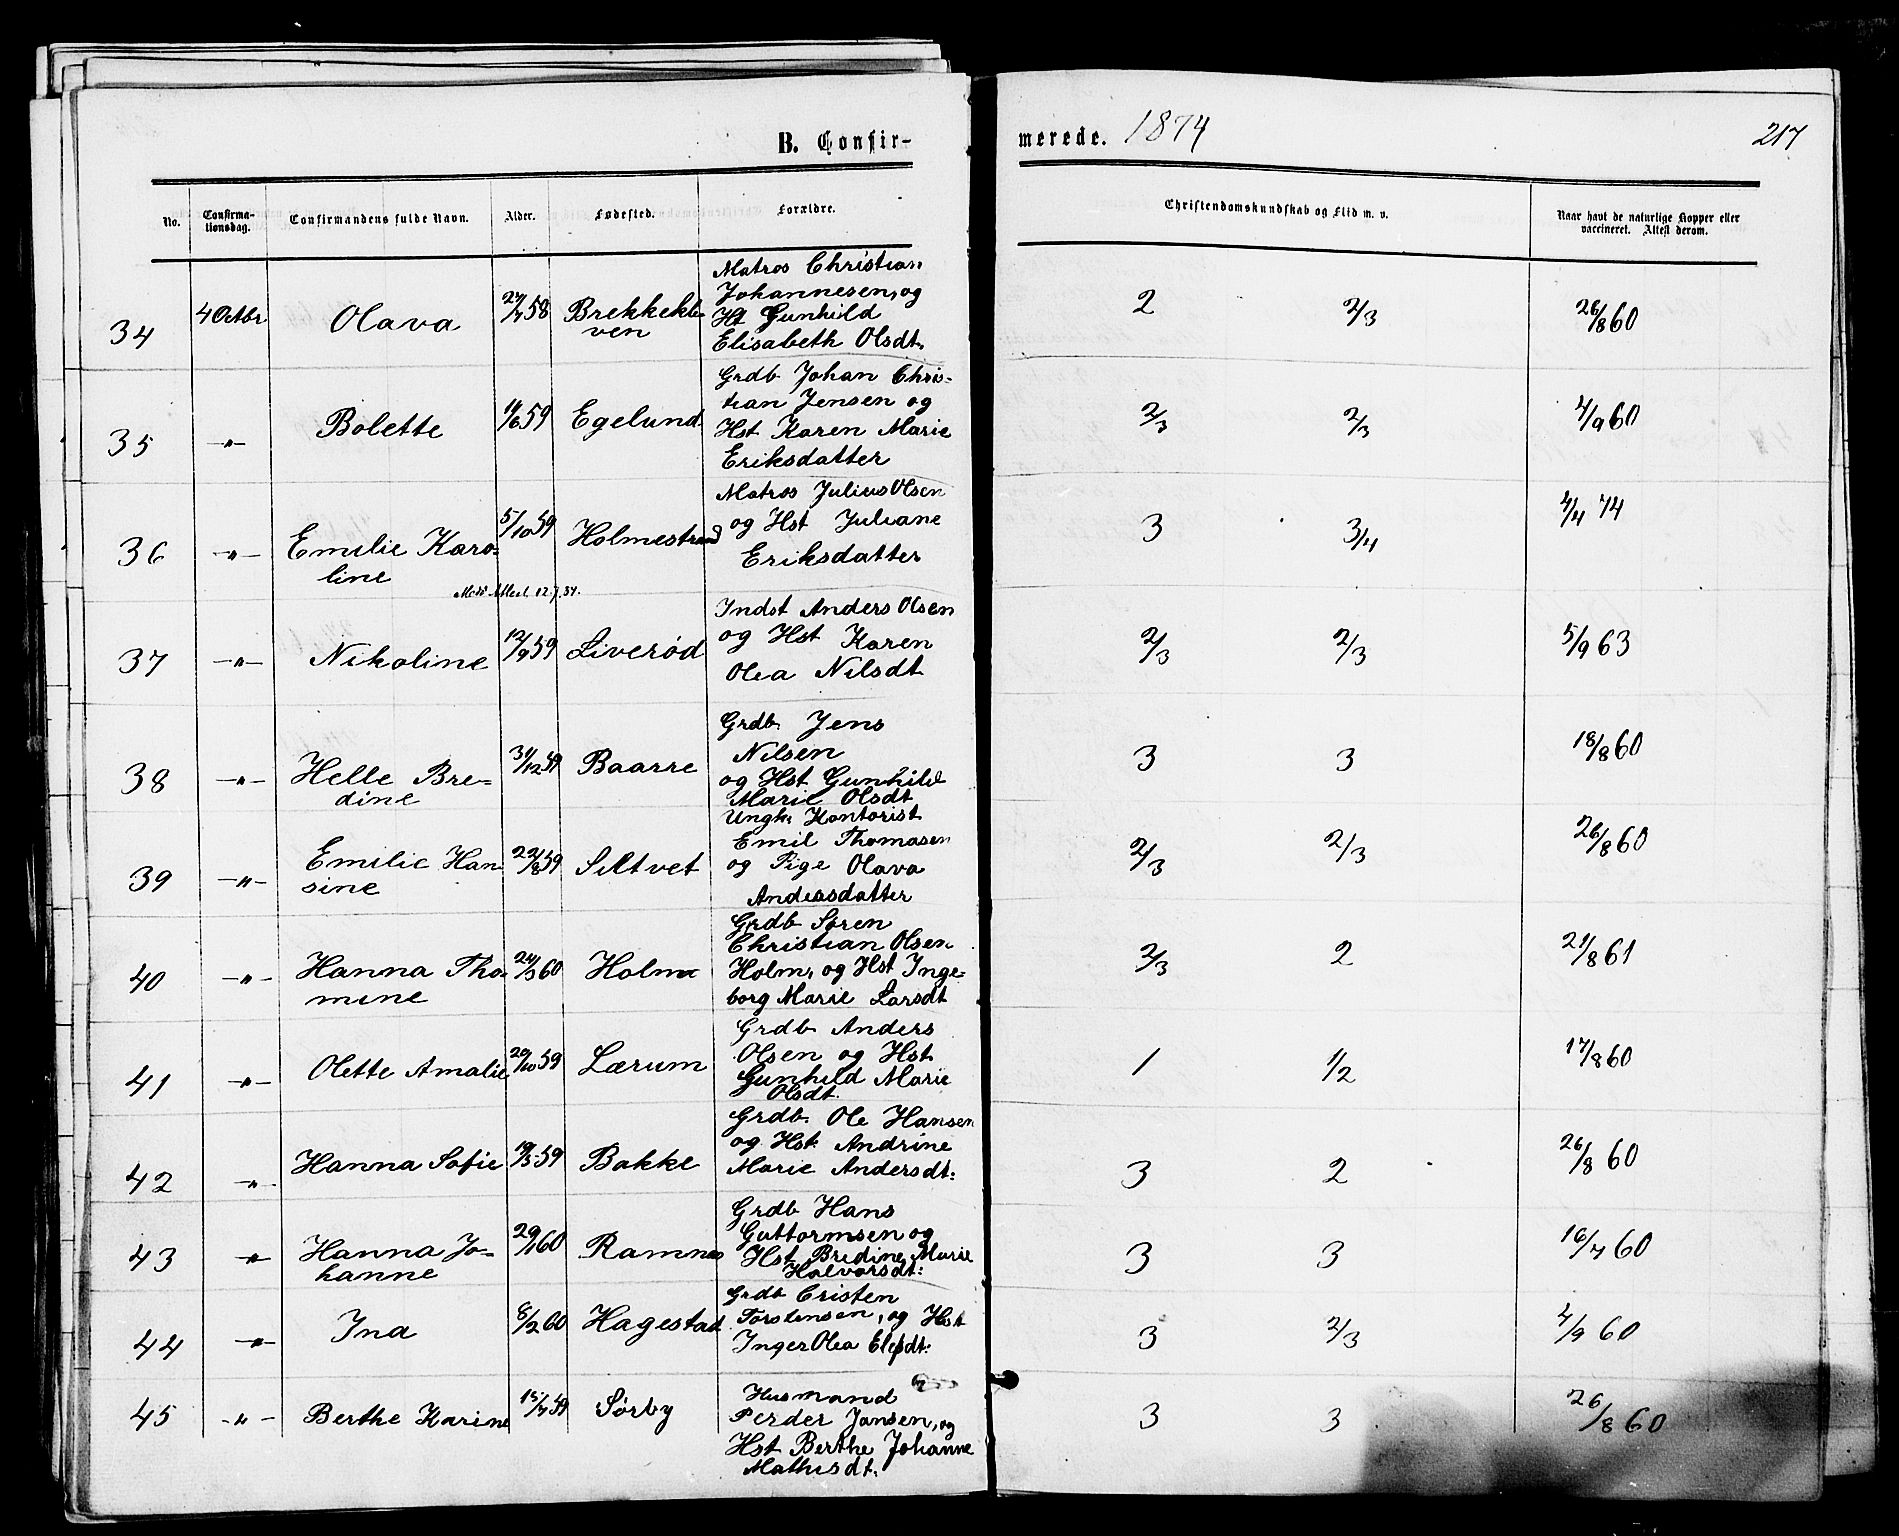 B. Confir-
merede. 1874
217
No.
Confirma-
tionsdag.
Confirmandens fulde Navn.
Alder.
Fødested.
Forældre.
Christendomskundskab og Flid m. v.
Naar havt de naturlige Kopper eller
vaccineret. Attest derom.
34 4 Octbr Olava 58 Brekkekle-
ven
Matros Christian
Johannesen, og
Hst Gunhild
Elisabeth Olsdt.
2 2/3 26/8 60
35 -"- Bolette 59 Egelund
Grdb. Johan Chris-
tian Jensen og
Hst Karen Marie
Eriksdatter
2/3 2/3 4/9 60
36 -"- Emilie Karo-
line
5/10 59 Holmestrand
Matros Julius Olsen
og Hst Juliane
Eriksdatter
3 3/4 4/4 74
37 -"- Nikoline 12/9 59 Liverød
Indst Anders Olsen
og Hst Karen
Olea Nilsdt
2/3 2/3 5/9 63
38 -"- Helle Bre-
dine
31/12 59 Baarre
Grdb. Jens
Nilsen
og Hst. Gunhild
Marie Olsdt
3 3 18/8 60
39 -"- Emilie Han-
sine
22/8 59 Siltvet
Ungk. Kontorist
Emil Thomasen
og Pige Olava
Andersdatter
2/3 2/3 26/8 60
40 -"- Hanna Tho-
mine
24/3 60 Holm
Grdb Søren
Christian Olsen
Holm, og Hst Inge-
borg Marie Larsdt
2/3 2 21/8 61
41 -"- Olette Amalie 29/10 59 Lærum
Grdb. Anders
Olsen og Hst
Gunhild Marie
Olsdt.
1 1/2 17/8 60
42 -"- Hanna Sofie 19/5 59 Bakke
Grdb. Ole Hansen
og Hst. Andrine
Marie Andersdt:
3 2 26/8 60
43 -"- Hanna Jo-
hanne
29/1 60 Ramnes
Grdb Hans
Guttormsen og
Hst Bredine Marie
Halvorsdt:
3 3 16/7 60
44 -"- Ina 8/2 60 Hagestad
Grdb Cristen
Torstensen, og Hst
Inger Olea
3 2/3 4/9 60
45 -"- Berthe Karine 15/7 59 Sørby
Husmand
Perder Jansen, og
Hst Berthe Johanne
Mathisdt.
3 3 26/8 60